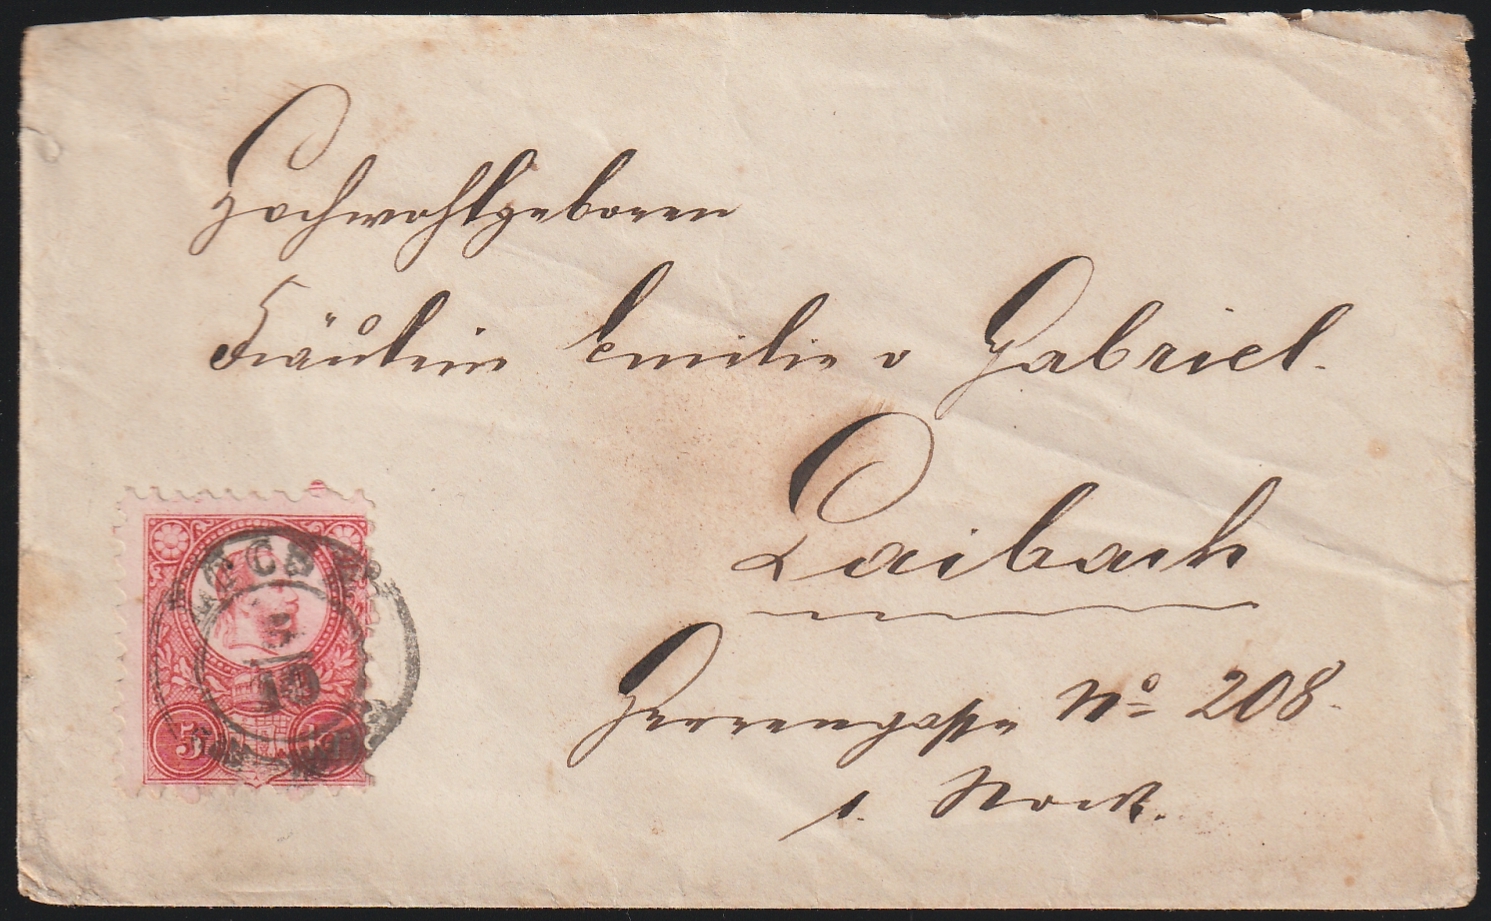 Hochwohlgeboren
Fräulein Emilie v Gabriel.
Laibach
Herrengasse No 208.
1. Stock.
5
9
10